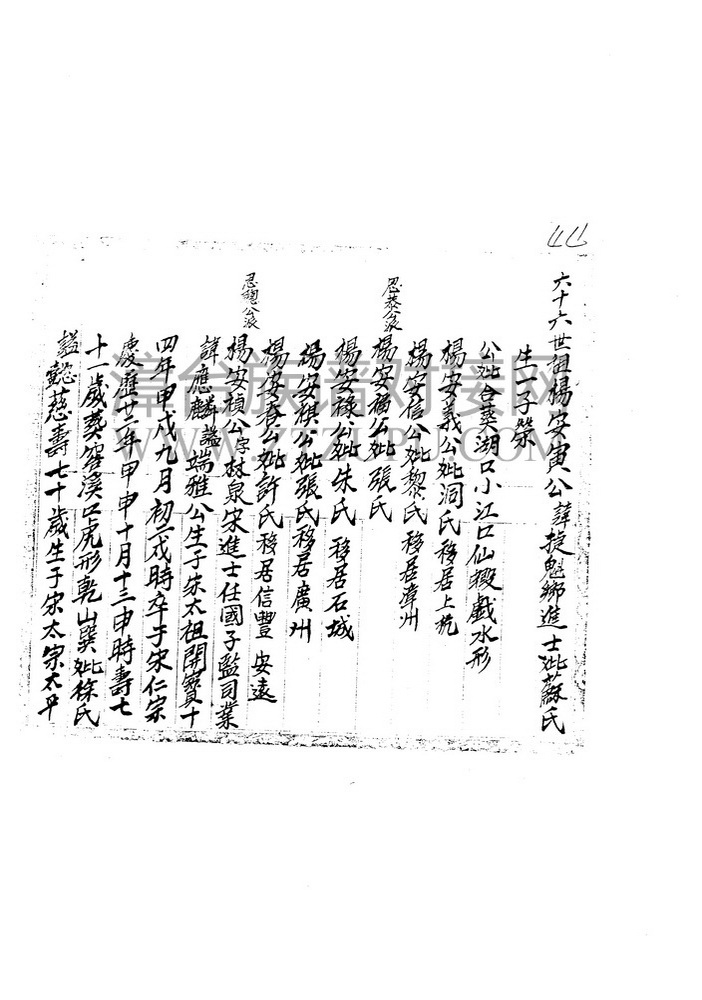 六十六世祖楊安寅公諱捷魁鄉進士妣蘇氏
生一子榮
公妣合葬湖口小江口仙搬戲水形
楊安義公妣洞氏移居上杭
楊安信公妣黎氏 移居漳州
恩恭公派
楊安福公妣張氏
楊安祿公妣朱氏 移居石城
楊安祺公妣張氏移居廣州
楊安春公妣許氏移居信豐 安遠
恩聰公派
楊安楨公字林泉宋進士任國子監司業
諱應麟謚端雅公生子宋太祖開寶十
四年甲戌九月初一戌時卒于宋仁宗
慶歷廿二年甲申十月十三申時壽七
十一歲葬窖溪口虎形乾山巽妣徐氏
謚懿慈壽七十歲生子宋太宗太平
漳台族譜对接网
WWW.ZTZUPU.COM